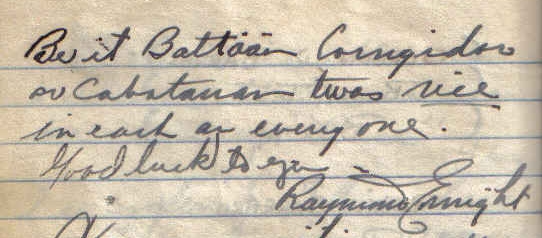 Be it Battaan Corrigidor
or Cabatanan twas rice
in each an every one.
Good luck to you –
Raymond Enright